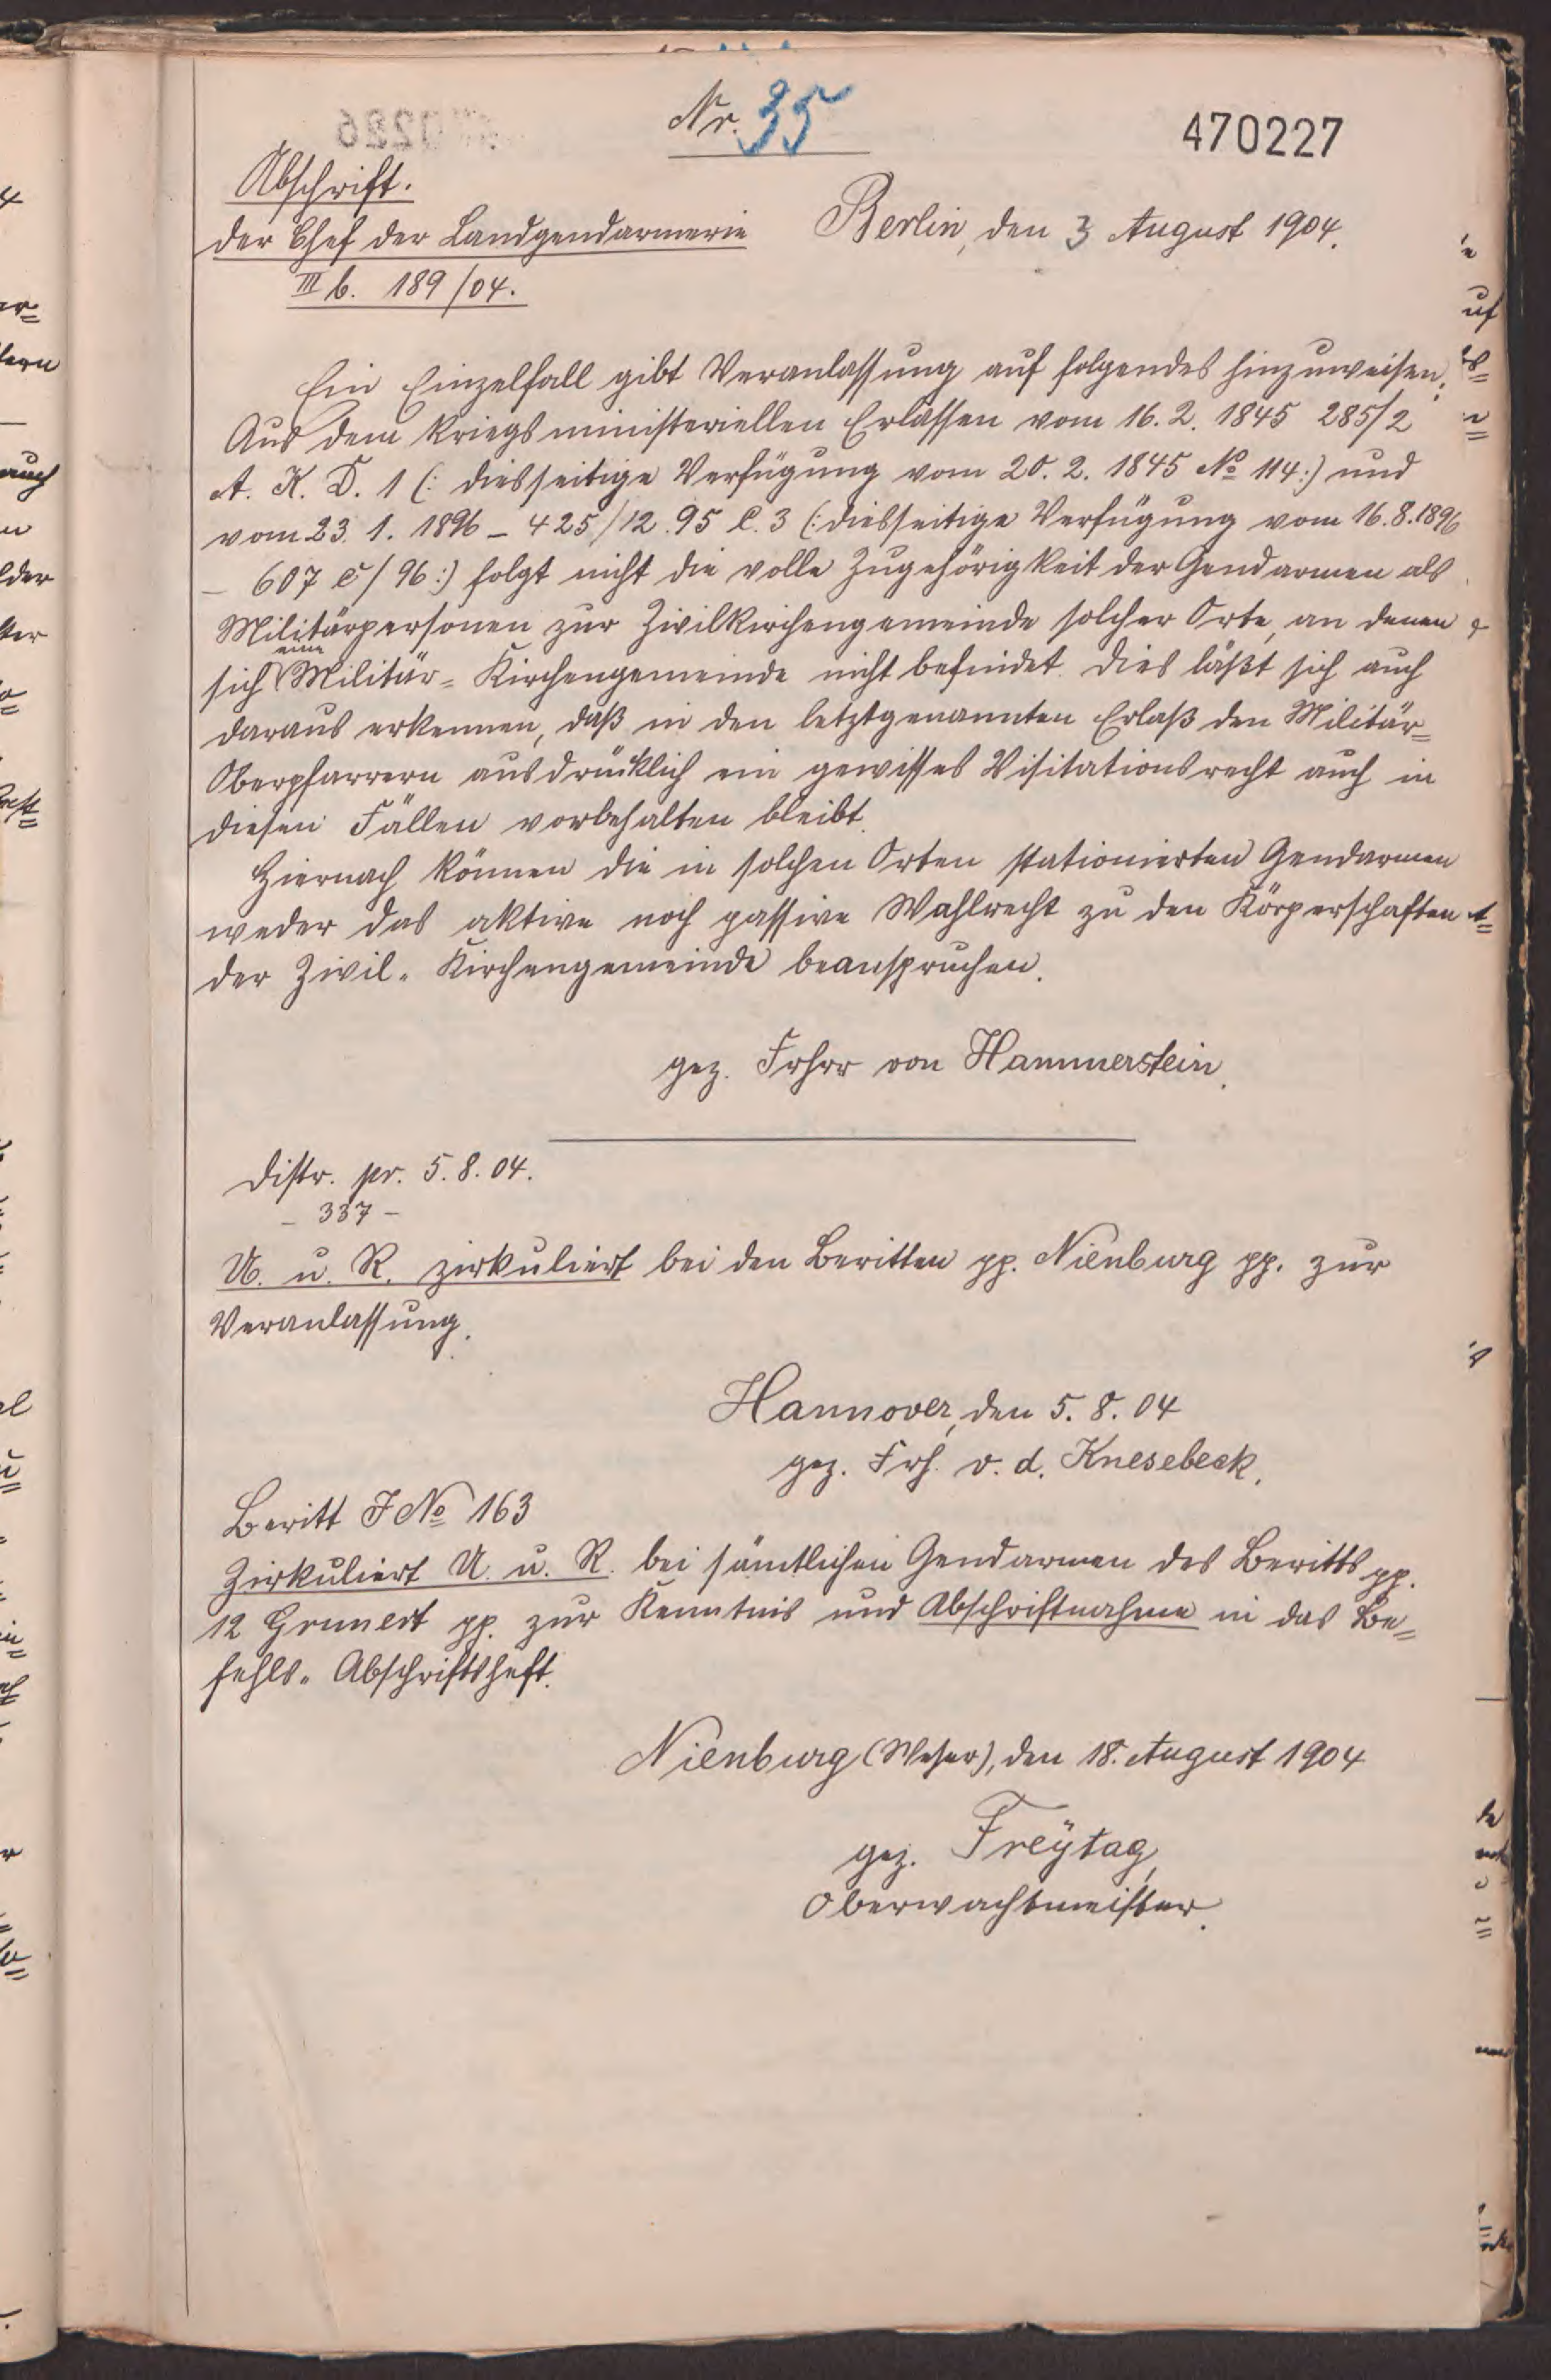 Nr. 35
470227
Abschrift.
Der Chef der Landgendarmerie Berlin, den 3 August 1904.
III b. 189/04.
Ein Einzelfall gibt Veranlassung auf folgendes hinzuweisen:
Aus dem kriegsministeriellen Erlassen vom 16.2.1845 285/2
A. K. D. 1 (: diesseitige Verfügung vom 20.2.1845 No 114:) und
vom 23.1.1896 – 425/12.95 C.3 (: diesseitige Verfügung vom 16.8.1896
– 607 C/96:) folgt nicht die volle Zugehörigkeit der Gendarmen als
Militärpersonen zur Zivilkirchengemeinde solcher Orte, an denen
sich eine Militär= Kirchengemeinde nicht befindet. Dies läßt sich auch
daraus erkennen, daß in den letztgenannten Erlaß den Militär=
Oberpfarrern ausdrücklich ein gewisses Visitationsrecht auch in
diesen Fällen vorbehalten bleibt.
Hiernach können die in solchen Orten stationierten Gendarmen
weder das aktive noch passive Wahlrecht zu den Körperschaften
der Zivil= Kirchengemeinde beanspruchen.
gez. Frhrr von Hammerstein.
Distr. pr. 5.8.04.
– 337 –
U. u. R. zirkuliert bei den Beritten pp. Nienburg pp. zur
Veranlassung.
Hannover, den 5.8.04
gez. Frh. v. d. Knesebeck.
Beritt J No 163
Zirkuliert U. u. R. bei sämtlichen Gendarmen des Beritts pp.
12 Grunert pp. zur Kenntnis und Abschriftnahme in das Be=
fehls= Abschriftsheft.
Nienburg (Weser), den 18. August 1904
gez. Freÿtag,
Oberwachtmeister.